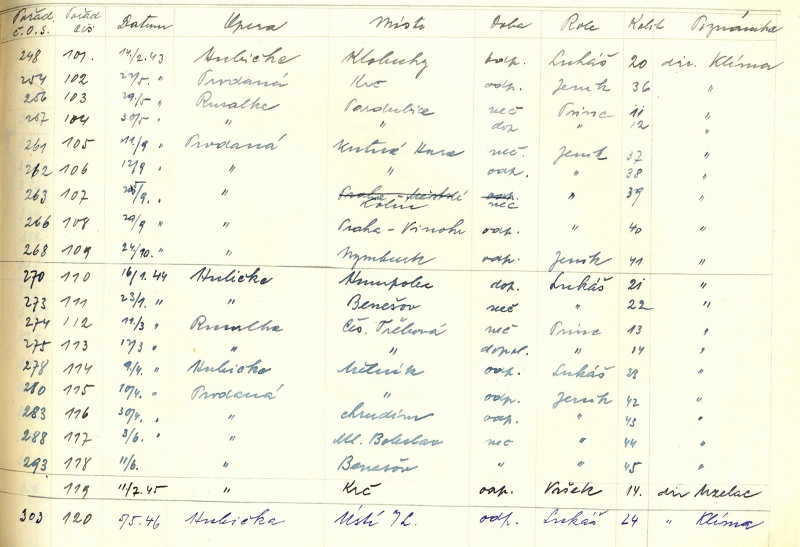 Pořad. č.O.S. Pořad čís Datum Opera Místo Doba Role Kolik Poznámka
248 101. 14/2.43 Hubička Klobuky odp. Lukáš 20 dir. Klíma
254 102 27/5. " Prodaná Krč odp. Jeník 36 "
256 103 29/5 " Rusalka Pardubice več Princ 11 "
257 104 30/5 " " " dop " 12 "
261 105 11/9 " Prodaná Kutná Hora več. Jeník 37 "
262 106 12/9 " " " odp. " 38 "
263 107 /9. " " Praha - Městské odp. " 39 "
Kolín več
266 108 29/9 " " Praha - Vinohr odp. " 40 "
268 109 24/10. " " Nymburk odp. Jeník 41 "
270 110 16/1.44 Hubička Humpolec dop. Lukáš 21 "
273 111 23/1. " " Benešov več " 22 "
274 112 11/3 " Rusalka Čes. Třebová več Princ 13 "
275 113 12/3 " " " dopol. " 14 "
278 114 9/4. " Hubička Mělník odp. Lukáš 23 "
280 115 10/4. " Prodaná " odp. Jeník 42 "
283 116 30/4. " " Chrudim odp. " 43 "
288 117 3/6. " " Ml. Boleslav več " 44 "
293 118 11/6. " Benešov " " 45 "
119 11/7.45 " Krč odp. Vašek 14. dir Uzelac
303 120 5/5.46 Hubička Ústí /L. odp. Lukáš 24 " Klíma